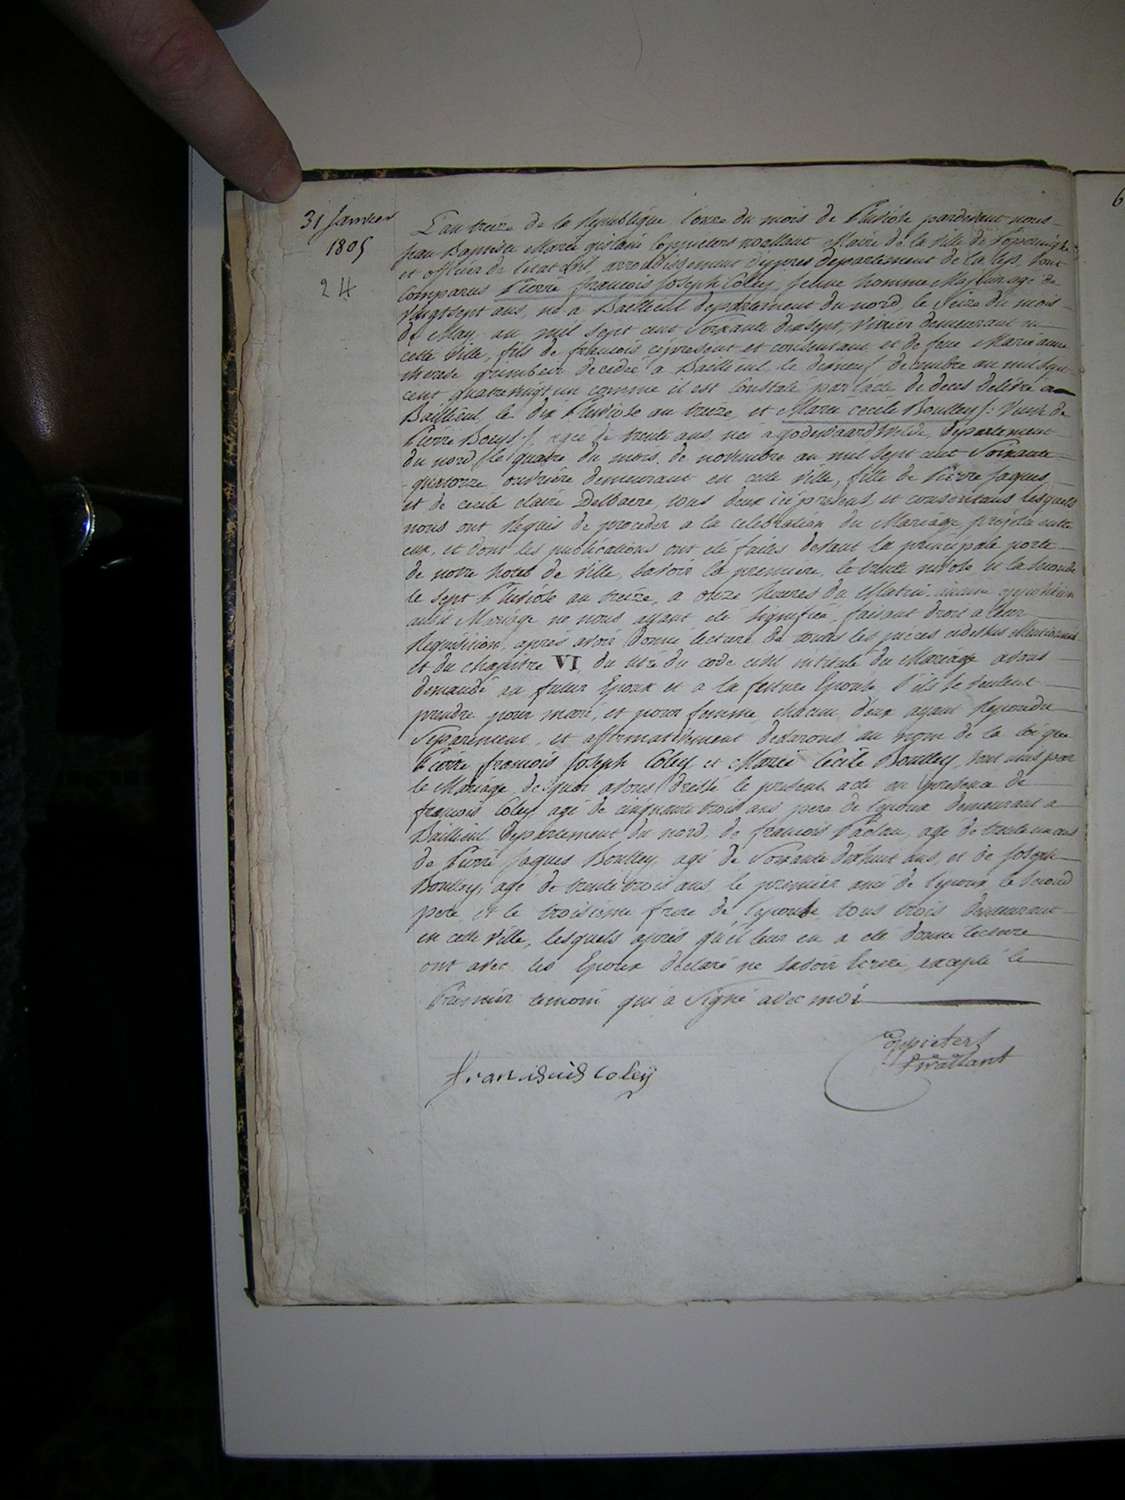 31 Janvier
1805
24
L'an treize de la République l'onze du mois de Pluviose pardevant nous
Jean Baptiste Marie Ghislain Coppieters wallant Maire de la Ville de Poperinghe
et officier de l'etat civil arrondissement d'ypres departement de la Lys, sont
comparus Pierre francois Joseph Coleÿ, Jeune homme Majeur agé de
Vingtsept ans, né a Bailleul departement du nord le Seize du mois
de May an mil sept cent Soixante dixsept, Vitrier demeurant en
cette Ville, fils de francois ci present et consentant et de feue Marie anne
therese decedée a Bailleul le dixneuf decembre an mil sept
cent quatrevingt un comme il est Constaté par l'acte de deces delivré a
Bailleul le dix Pluviose an treize et Marie cecile Boulleÿ /: Veuve de
Pierre Boeys :/ agée de trente ans, née a godewaersvelde, departement
du nord le quatre du mois de novembre an mil sept cent Soixante
quatorze ouvrière demeurant en cette ville, fille de Pierre Jaques
et de cecile claire Delbaere, tous deux ici presens et consentans lesquels
nous ont Requis de proceder a la celebration du Mariage projetté entre
eux, et dont les publications ont été faites devant la principale porte
de notre hotel de ville, Savoir la premiere, le trente nivose et la Seconde
le sept Pluviose an treize, a onze heures du Matin, aucune opposition
audit Mariage ne nous ayant été Signifiée, faisant droit a leur
Requisition, après avoir donné lecture de toutes les pièces cidessus Mentionnées
et du chapitre VI du titre du code civil intitulé du Mariage avons
demandé au futur Epoux et a la future Epouse S'ils se veulent
prendre pour mari, et pour femme, chacun d'eux ayant Repondu
Separement, et affirmativement declarons au nom de la loi que
Pierre francois Joseph Coleÿ et Marie Cecile Boulleÿ, sont unis par
le Mariage de quoi avons dressé le present acte en presence de
francois Coleÿ agé de cinquante trois ans pere de l'epoux demeurant a
Bailleul departement du nord, de francois agé de trente un ans
de Pierre Jaques Boulleÿ, agé de Soixante dixhuit ans, et de Joseph
Boulleÿ, agé de trente trois ans le premier ami de l'epoux le Second
pere et le troisieme frere de l'epouse tous trois demeurant
en cette Ville, lesquels après qu'il leur en a eté donné lecture
ont avec les Epoux declaré ne Savoir Ecrire, excepté le
Premier temoin qui a Signé avec moi
franciscus coleÿ
Coppieters
wallant
6